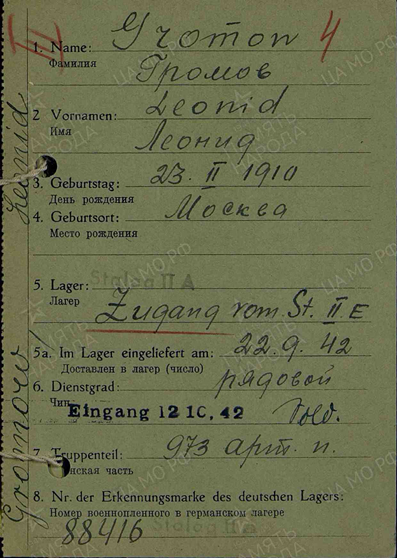 III
4
1. Name: Gromow
Фамилия Громов
2 Vornamen: Leonid
Имя Леонид
3. Geburtstag: 23. II 1910
День рождения
4. Geburtsort: Москва
Место рождения
Stalag II A
5. Lager:
Лагер
Zugang vom St. II. E
5a. Im Lager eingeliefert am: 22.9.42
Доставлен в лагер (число)
6. Dienstgrad: рядовой
Чин
Eingang 12 10. 42 Sold.
7. Truppenteil: 973 арт. п.
нская часть
8. Nr. der Erkennungsmarke des deutschen Lagers:
Номер военнопленного в германском лагере
88416 Stalag II A
Gromow, Leonid
ЦА МО РФ
ПАМЯТЬ НАРОДА